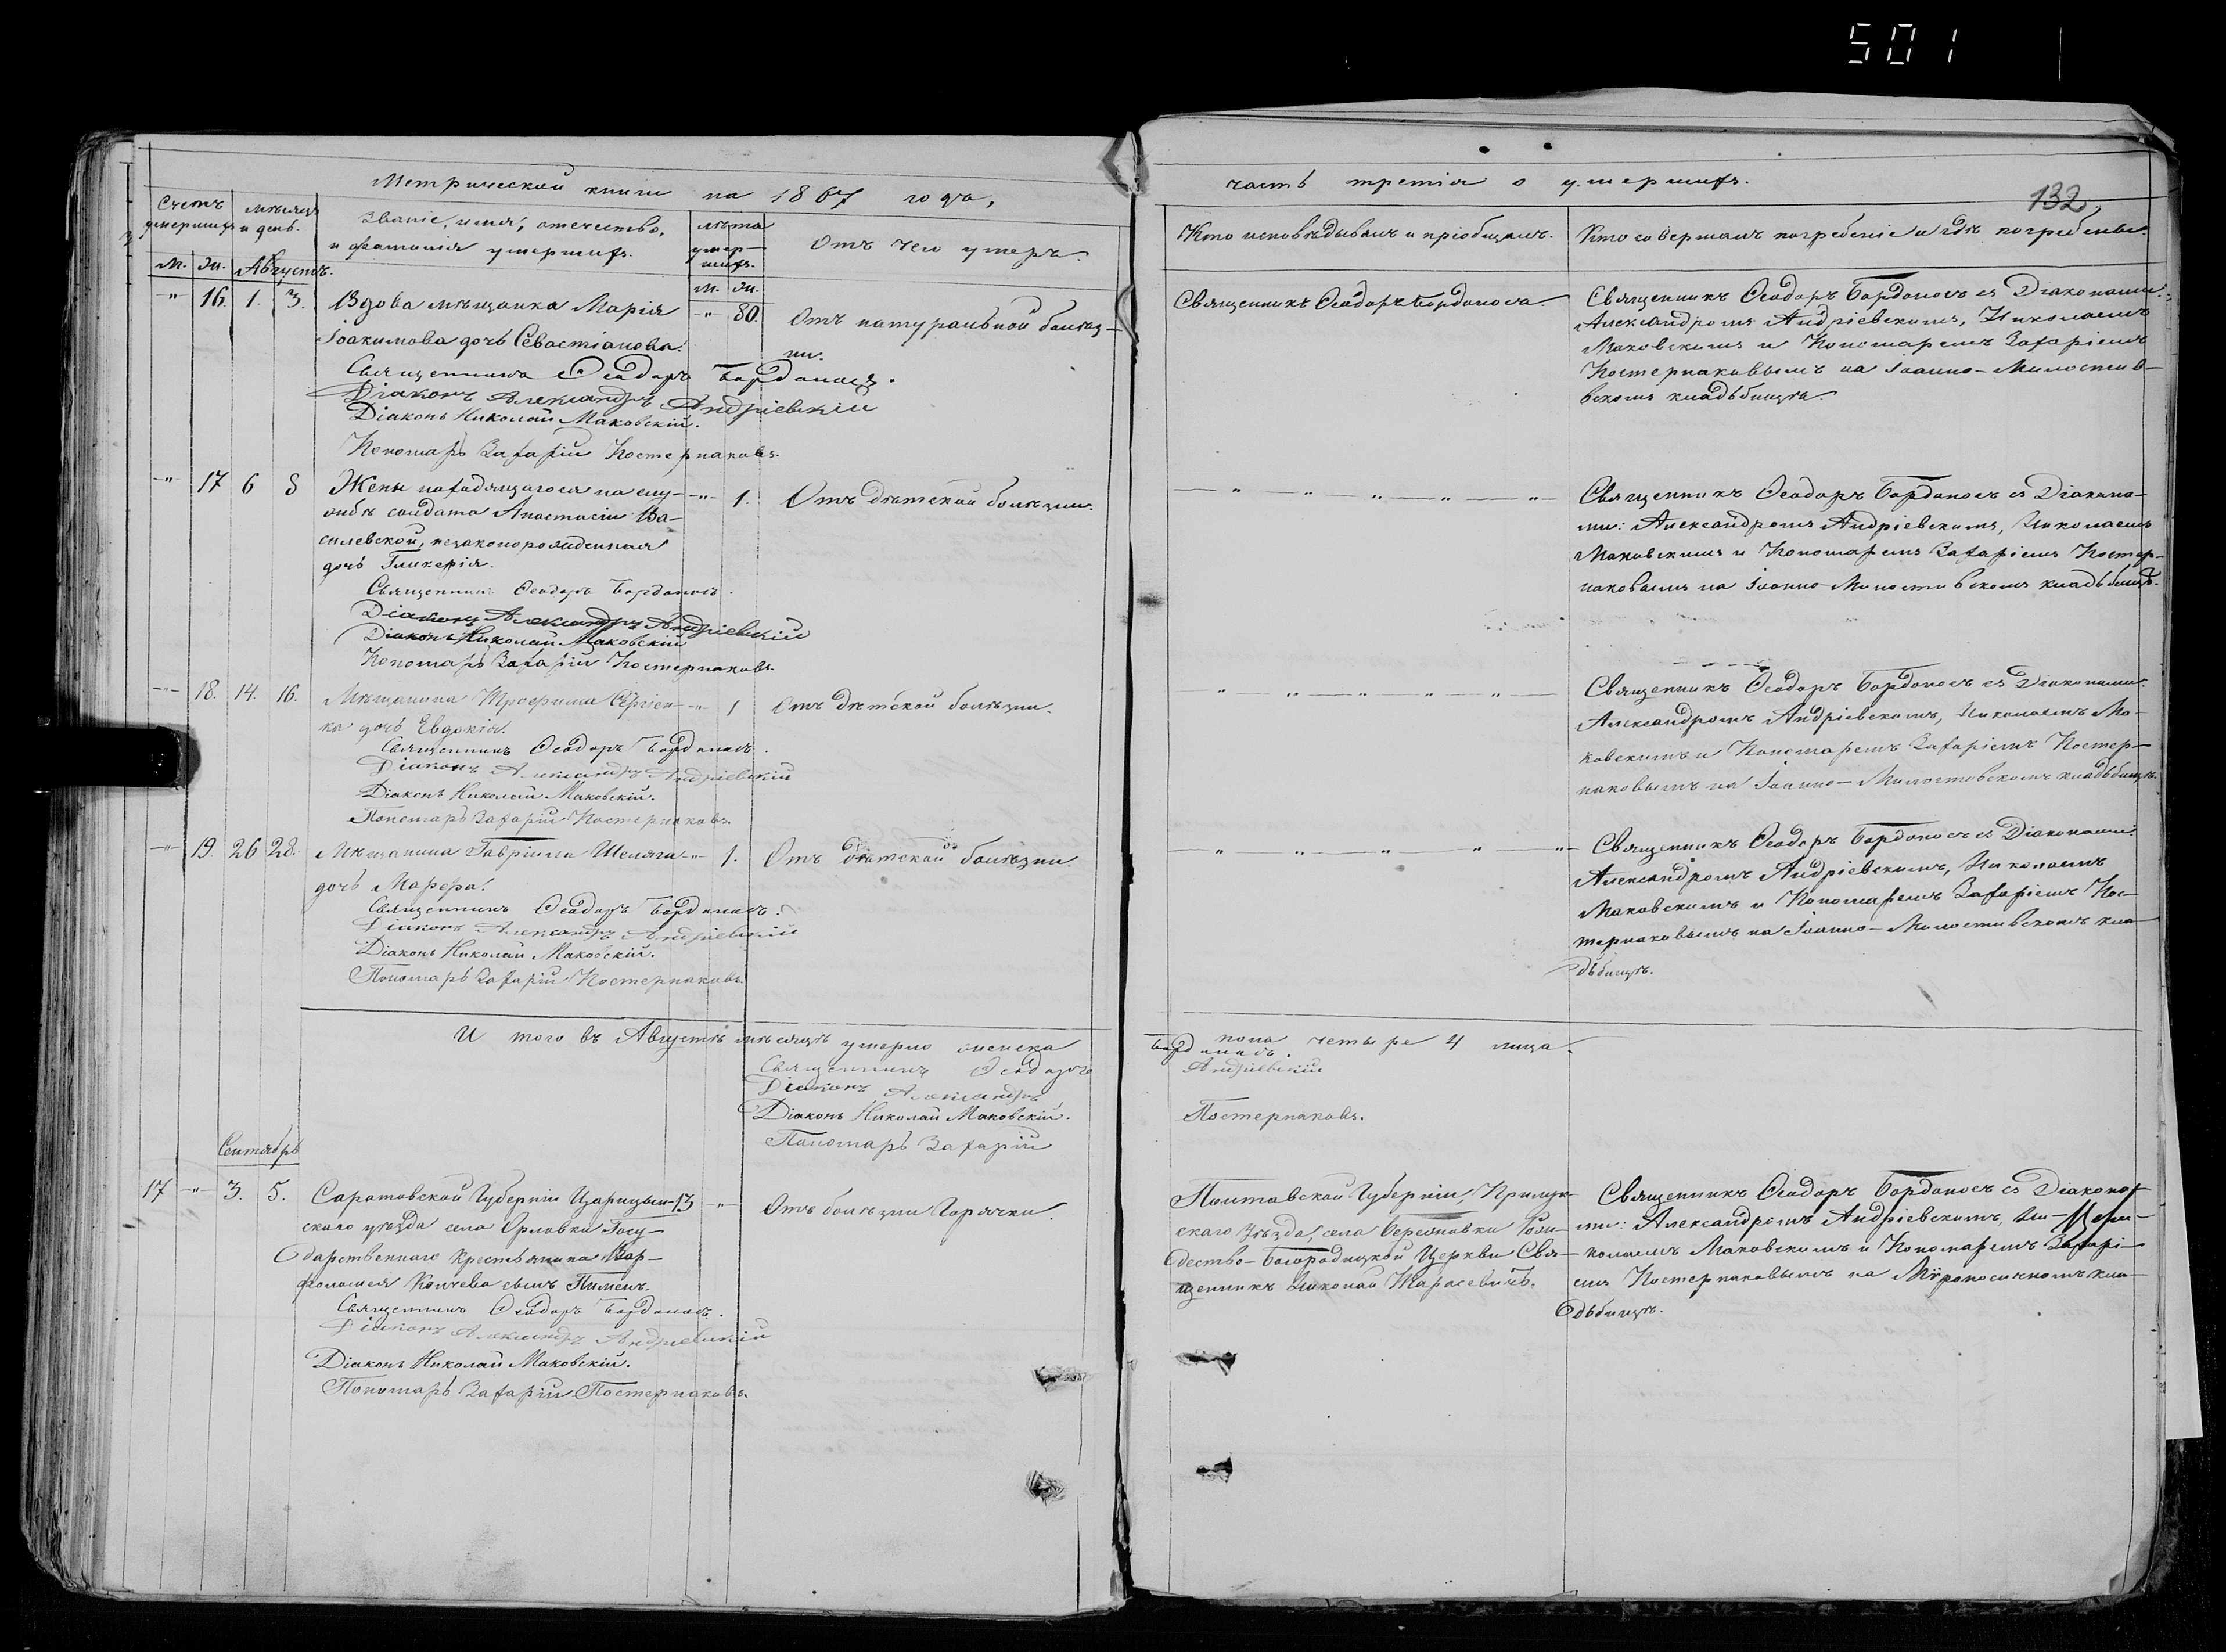 501
Метрической книги на 1867 годъ,
часть третія о умершихъ.
132
Счетъ умершихъ
мѣсяцъ и день.
Званіе, имя, отечество, и фамилія умершихъ.
лѣта умершихъ.
Отъ чего умеръ.
Кто исповѣдывалъ и пріобщалъ.
Кто совершалъ погребеніе и гдѣ погребены.
М. Ж. Августъ.
М. Ж.
" 16. 1. 3. Вдова мѣщанка Марія " 80. Отъ натуральной болѣз-
Іоакимова дочь Севастіанова. ни.
Священникъ Ѳеодоръ Бордоносъ.
Діаконъ Александръ Андріевскій
Діаконъ Николай Маковскій.
Пономарь Захарій Постернаковъ.
Священникъ Ѳеодоръ Бордоносъ
Священникъ Ѳеодоръ Бордоносъ съ Діаконами:
Александромъ Андріевскимъ, Николаемъ
Маковскимъ и Пономаремъ Захаріемъ
Постернаковымъ на Іоанно-Милостив-
вскомъ кладьбищѣ.
" 17 6 8 Жены находящагося на слу- " 1. Отъ дѣтской болѣзни.
жбѣ солдата Анастасіи Ва-
силевской, незаконорожденная
дочь Гликерія.
Священникъ Ѳеодоръ Бордоносъ.
Діаконъ Александръ Андріевскій
Діаконъ Николай Маковскій
Пономарь Захарій Постернаковъ.
" " " " "
Священникъ Ѳеодоръ Бордоносъ съ Діакона-
ми: Александромъ Андріевскимъ, Николаемъ
Маковскимъ и Пономаремъ Захаріемъ Постер-
наковымъ на Іоанно-Милостивскомъ кладьбищѣ.
" 18. 14. 16. Мѣщанина Трофима Сергіен- " 1 Отъ дѣтской болѣзни.
ка дочь Евдокія.
Священникъ Ѳеодоръ Бордоносъ.
Діаконъ Александръ Андріевскій
Діаконъ Николай Маковскій.
Пономарь Захарій Постернаковъ.
" " " " "
Священникъ Ѳеодоръ Бордоносъ съ Діаконами:
Александромъ Андріевскимъ, Николаемъ Ма-
ковскимъ и Пономаремъ Захаріемъ Постер-
наковымъ на Іоанно-Милостовскомъ кладьбищѣ.
" 19. 26 28. Мѣщанина Гавріила Шеляги " 1. Отъ дѣтской болѣзни.
дочь Марфа.
Священникъ Ѳеодоръ Бордоносъ.
Діаконъ Александръ Андріевскій
Діаконъ Николай Маковскій.
Пономарь Захарій Постернаковъ.
" " " " "
Священникъ Ѳеодоръ Бордоносъ съ Діаконами:
Александромъ Андріевскимъ, Николаемъ
Маковскимъ и Пономаремъ Захаріемъ Пос-
тернаковымъ на Іоанно-Милостивскомъ кла-
дьбищѣ.
И того въ Августѣ мѣсяцѣ умерло женска пола четыре 4 лица.
Священникъ Ѳеодоръ Бордоносъ.
Діаконъ Александръ Андріевскій
Діаконъ Николай Маковскій.
Пономарь Захарій Постернаковъ.
Сентябрь
17 " 3. 5. Саратовской Губерніи Царицын- 13 " Отъ болѣзни Горячки.
скаго уѣзда села Орловки Госу-
дарственнаго Крестьянина Вар-
фоломея Колчева сынъ Пименъ.
Священникъ Ѳеодоръ Бордоносъ.
Діаконъ Александръ Андріевскій
Діаконъ Николай Маковскій.
Пономарь Захарій Постернаковъ.
Полтавской Губерніи, Прилук-
скаго Уѣзда, села Березовки Рож-
дество-Богородицкой Церкви Свя-
щенникъ Николай Тарасевичъ.
Священникъ Ѳеодоръ Бордоносъ съ Діакона-
ми: Александромъ Андріевскимъ, Ни-
колаемъ Маковскимъ и Пономаремъ Захарі-
емъ Постернаковымъ на Мѵроносицкомъ кла-
дьбищѣ.